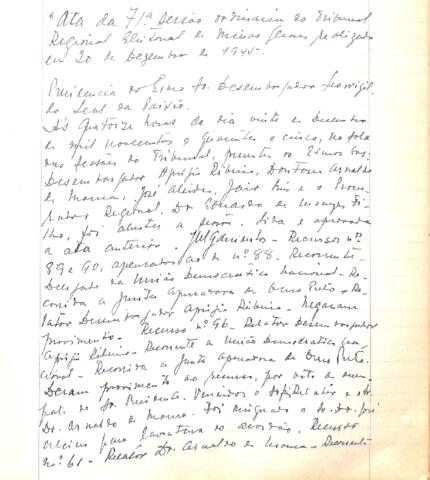 "Ata da 71ª Sessão ordinaria do Tribunal
Regional Eleitoral de Minas Gerais realizada
em 20 de Dezembro de 1945.
Presidencia do Exmo Sr. Desembargador Leovigil-
do Leal da Paixão.
Ás quatorze horas do dia vinte de Dezembro
de mil novecentos e quarenta e cinco, na sala
das sessões do Tribunal, presentes os Exmos Srs.
Desembargador Aprigio Ribeiro, Doutores Arnaldo
de Moura, José Alcides, Jair Lins e o Procu-
rador Regional, Dr. Eduardo de Menezes Fi-
lho, foi aberta a sessão. Lida e aprovada
a ata anterior. Julgamentos - Recursos nº
89 e 90, apensados ao de nº 88. Recorrente -
Delegado da União Democratica Nacional - Re-
corrida a Junta Apuradora de Ouro Preto - Re-
lator Desembargador Aprigio Ribeiro - Negaram
provimento. Recurso nº 96 - Relator Desembargador
Aprigio Ribeiro - Recorrente a União Democratica Na-
cional - Recorrida a Junta Apuradora de Ouro Preto.
Deram provimento ao recurso, por voto de desem-
pate do Sr. Presidente. Vencidos o Relator e o
Dr. Arnaldo de Moura. Foi designado o Sr. Dr. José
Alcides para lavratura do acordão. Recurso
nº 61 - Relator Dr. Arnaldo de Moura - Recorrente